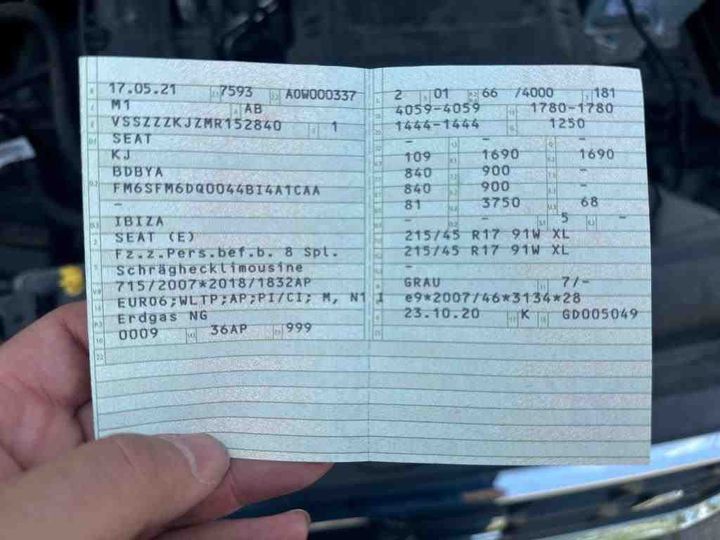 17.05.21 7593 A0W000337
M1 AB
VSSZZZKJZMR152840 1
SEAT
KJ
BDBYA
FM6SFM6DQ0044BI4A1CAA
-
IBIZA
SEAT (E)
Fz.z.Pers.bef.b. 8 Spl.
Schräghecklimousine
715/2007*2018/1832AP
EURO6;WLTP;AP;PI/CI; M, N1 I
Erdgas NG
0009 36AP 999
2 01 66 /4000 181
4059-4059 1780-1780
1444-1444 1250
- - -
109 1690 1690
840 900 -
840 900 -
81 3750 68
- - 5 -
215/45 R17 91W XL
215/45 R17 91W XL
-
GRAU 7/-
e9*2007/46*3134*28
23.10.20 K GD005049